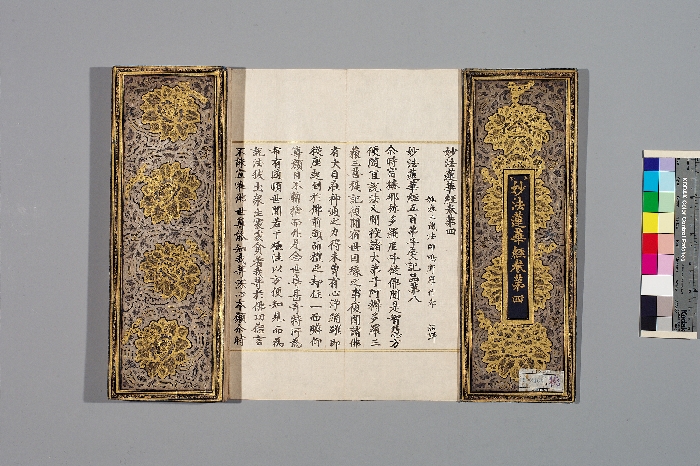 妙法蓮華經卷第四
妙法蓮華經卷第四
妙法蓮華經五百弟子受記品第八
尒時富樓那彌多羅尼子從佛聞是智慧方
便隨宜說法又聞授諸大弟子阿耨多羅三
藐三菩提記復聞宿世因緣之事復聞諸佛
有大自在神通之力得未曾有心淨踊躍即
從座起到於佛前頭面禮足却住一面瞻仰
尊顏目不暫捨而作是念世尊甚奇特所爲
希有隨順世間若干種性以方便知見而爲
說法拔出衆生處處貪著我等於佛功德言
不能宣唯佛世尊能知我等深心本願尒時